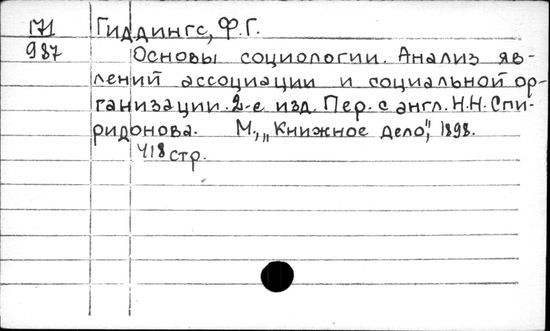 П71 Гиддингс, Ф.Г.
987 Основы социологии. Анализ яв-
лений ассоциации и социальной ор-
ганизации. 2-е изд. Пер. с англ. Н.Н. Спи-
ридонова. М., „Книжное дело", 1898.
418 стр.